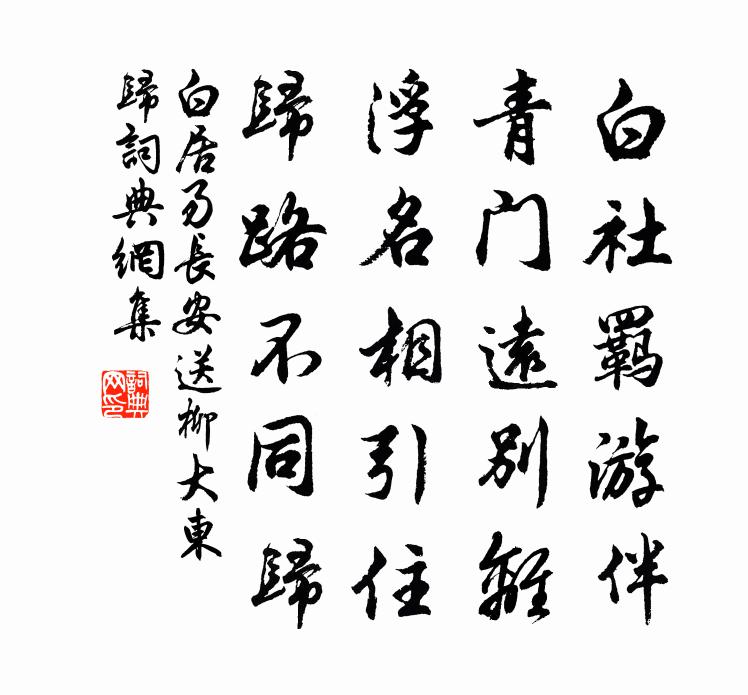 白社羈游伴
青門遠別離
浮名相引住
歸路不同歸
白居易長安送柳大東
歸詞典網集
詞典
网印